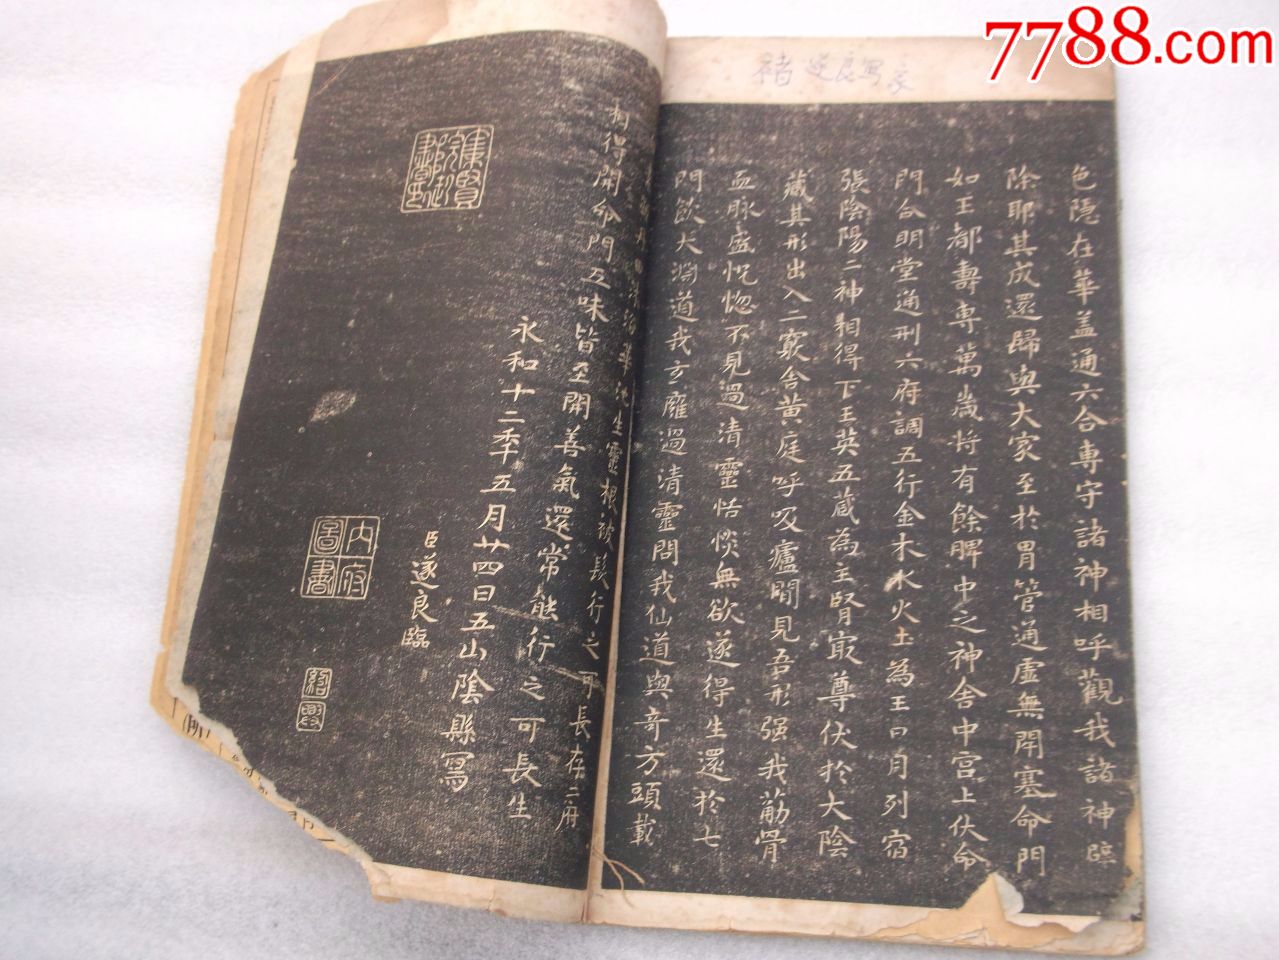 7788.com
褚遂良写
色隱在華盖通六合專守諸神相呼觀我諸神辟
除耶其成還歸與大家至於胃管通虛無閉塞命門
如王都壽專萬歲将有餘脾中之神舍中宫上伏命
門合明堂通利六府調五行金木水火土為王日月列宿
張陰陽二神相得下王英五蔵為主腎冣尊伏於大陰
藏其形出入二竅舍黄庭呼吸廬閒見吾形强我筋骨
血脉盛怳惚不見過清靈恬惔無欲遂得生還於七
門飲大淵道我玄廱過清靈問我仙道與奇方頭載
華池生靈根被髮行之可長存二府
相得開命門五味皆至開善氣還常能行之可長生
永和十二年五月廿四日五山陰縣寫
臣遂良臨
集賢院御書印
内府圖書
紹興